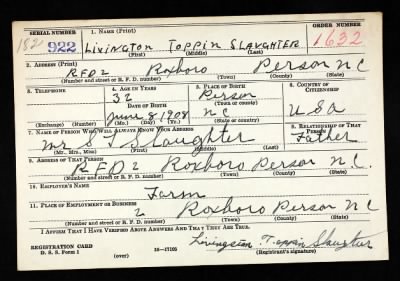 SERIAL NUMBER 1. NAME (Print) ORDER NUMBER
182 922 LIVINGTON TOPPIN SLAUGHTER 1632
(First) (Middle) (Last)
2. ADDRESS (Print)
RFD 2 Roxboro Person N C
(Number and street or R. F. D. number) (Town) (County) (State)
3. TELEPHONE 4. AGE IN YEARS 5. PLACE OF BIRTH 6. COUNTRY OF CITIZENSHIP
32 Person
DATE OF BIRTH (Town or county)
June 8 1908 N C USA
(Exchange) (Number) (Mo.) (Day) (Yr.) (State or country)
7. NAME OF PERSON WHO WILL ALWAYS KNOW YOUR ADDRESS 8. RELATIONSHIP OF THAT PERSON
Mr S T Slaughter Father
(Mr., Mrs., Miss) (First) (Middle) (Last)
9. ADDRESS OF THAT PERSON
RFD 2 Roxboro Person N.C.
(Number and street or R. F. D. number) (Town) (County) (State)
10. EMPLOYER'S NAME
Farm
11. PLACE OF EMPLOYMENT OR BUSINESS
2 Roxboro Person N C
(Number and street or R. F. D. number) (Town) (County) (State)
I AFFIRM THAT I HAVE VERIFIED ABOVE ANSWERS AND THAT THEY ARE TRUE.
REGISTRATION CARD
D. S. S. Form 1 16—17105 Livingston Toppin Slaughter
(Registrant's signature)